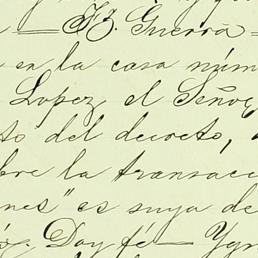 — F. G. Guerra —
en la casa núm
Lopez, el Seño
to del decreto,
bre la transacc
nes" es suya de
Doy fé — Ygn